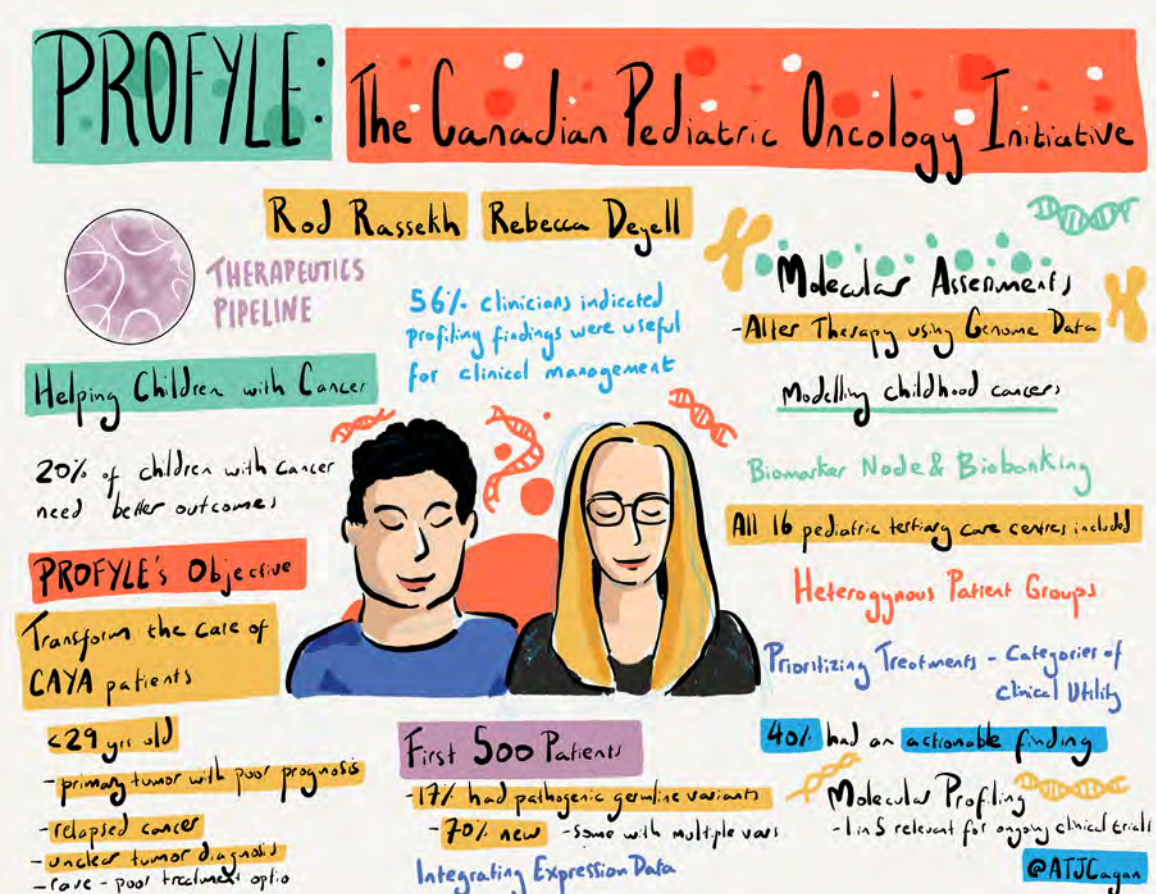 PROFYLE:
The Canadian Pediatric Oncology Initiative
Rod Rassekh
Rebecca Deyell
THERAPEUTICS
PIPELINE
56% clinicians indicated
profiling findings were useful
for clinical management
Helping Children with Cancer
20% of children with cancer
need better outcomes
PROFYLE's Objective
Transform the care of
CAYA patients
<29 yrs old
- primary tumor with poor prognosis
- relapsed cancer
- unclear tumor diagnosis
- rare - poor treatment optio
First 500 Patients
- 17% had pathogenic germline variants
- 70% new - some with multiple vars
Integrating Expression Data
Molecular Assessments
- Alter Therapy using Genome Data
Modelling childhood cancers
Biomarker Node & Biobanking
All 16 pediatric tertiary care centres included
Heterogynous Patient Groups
Prioritizing Treatments - Categories of
Clinical Utility
40% had an actionable finding
Molecular Profiling
- 1 in 5 relevant for ongoing clinical trials
@ATJCagan